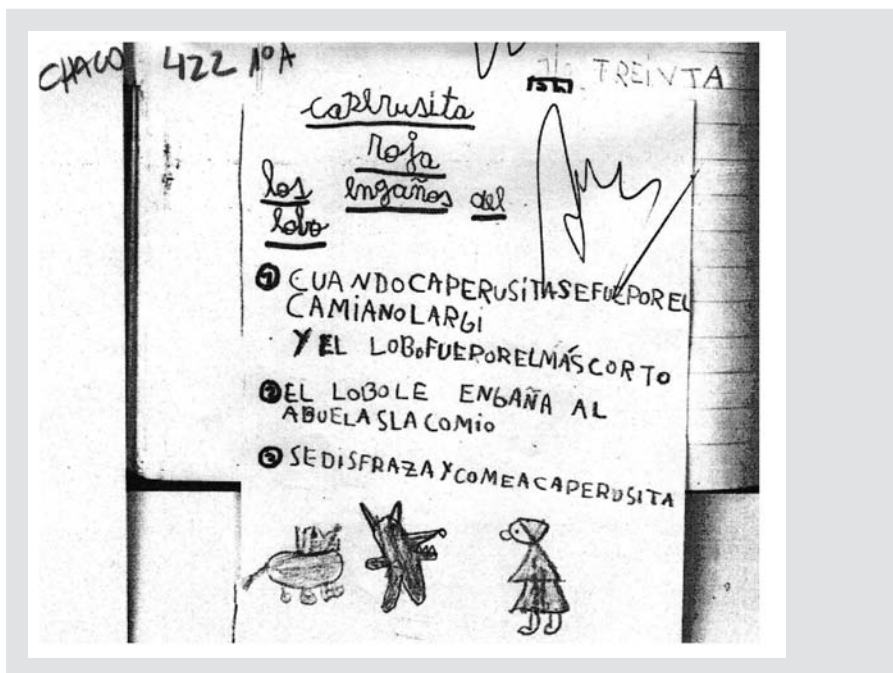 CHACO 422 1º A
TREINTA
caperusita
roja
los engaños del
lobo
1 CUANDOCAPERUSITASEFUEPOREL
CAMIANOLARGI
Y EL LOBOFUEPORELMÁSCORTO
2 EL LOBOLE ENGAÑA AL
ABUELASLACOMIO
3 SEDISFRAZAYCOMEACAPERUSITA